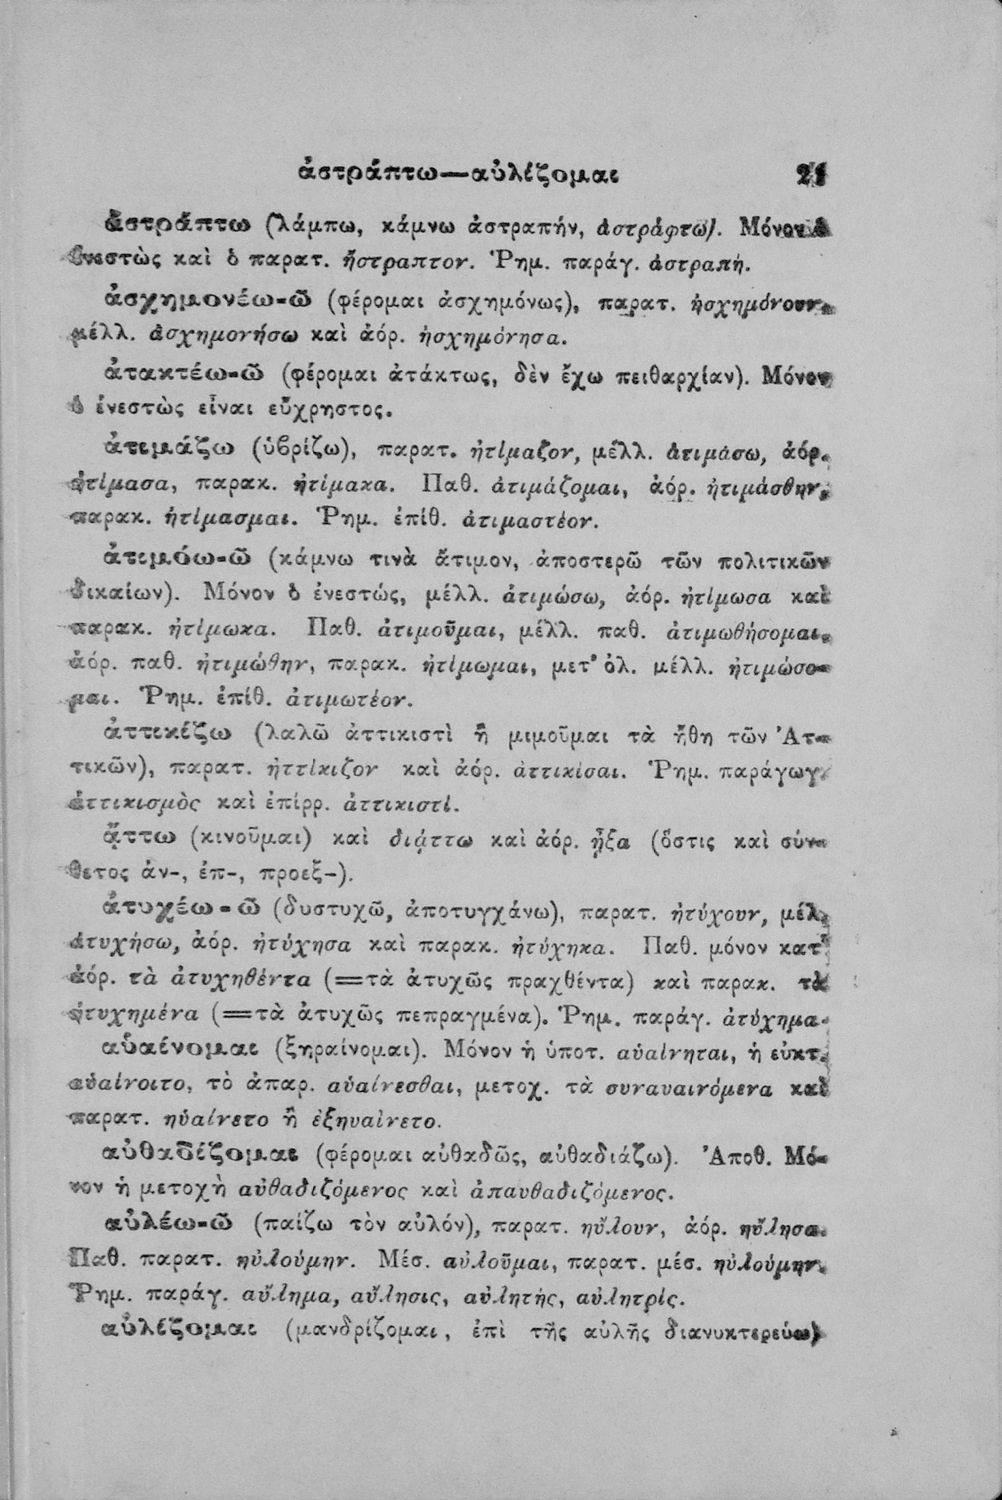 ἀστράπτω—αὐλίζομαι 21
ἀστράπτω (λάμπω, κάμνω ἀστραπήν, ἀστράφτω). Μόνον ὁ
ἐνεστὼς καὶ ὁ παρατ. ἤστραπτον. Ῥημ. παράγ. ἀστραπή.
ἀσχημονέω-ῶ (φέρομαι ἀσχημόνως), παρατ. ἠσχημόνουν,
μέλλ. ἀσχημονήσω καὶ ἀόρ. ἠσχημόνησα.
ἀτακτέω-ῶ (φέρομαι ἀτάκτως, δὲν ἔχω πειθαρχίαν). Μόνον
ὁ ἐνεστὼς εἶναι εὔχρηστος.
ἀτιμάζω (ὑβρίζω), παρατ. ἠτίμαζον, μέλλ. ἀτιμάσω, ἀόρ.
ἠτίμασα, παρακ. ἠτίμακα. Παθ. ἀτιμάζομαι, ἀόρ. ἠτιμάσθην,
παρακ. ἠτίμασμαι. Ῥημ. ἐπίθ. ἀτιμαστέον.
ἀτιμόω-ῶ (κάμνω τινὰ ἄτιμον, ἀποστερῶ τῶν πολιτικῶν
δικαίων). Μόνον ὁ ἐνεστώς, μέλλ. ἀτιμώσω, ἀόρ. ἠτίμωσα καὶ
παρακ. ἠτίμωκα. Παθ. ἀτιμοῦμαι, μέλλ. παθ. ἀτιμωθήσομαι,
ἀόρ. παθ. ἠτιμώθην, παρακ. ἠτίμωμαι, μετ' ὀλ. μέλλ. ἠτιμώσο-
μαι. Ῥημ. ἐπίθ. ἀτιμωτέον.
ἀττικίζω (λαλῶ ἀττικιστὶ ἢ μιμοῦμαι τὰ ἤθη τῶν Ἀτ-
τικῶν), παρατ. ἠττίκιζον καὶ ἀόρ. ἀττικίσαι. Ῥημ. παράγωγ.
ἀττικισμὸς καὶ ἐπίρρ. ἀττικιστί.
ᾄττω (κινοῦμαι) καὶ διᾴττω καὶ ἀόρ. ᾖξα (ὅστις καὶ σύν-
θετος ἀν-, ἐπ-, προεξ-).
ἀτυχέω-ῶ (δυστυχῶ, ἀποτυγχάνω), παρατ. ἠτύχουν, μέλ.
ἀτυχήσω, ἀόρ. ἠτύχησα καὶ παρακ. ἠτύχηκα. Παθ. μόνον κατ'
ἀόρ. τὰ ἀτυχηθέντα (=τὰ ἀτυχῶς πραχθέντα) καὶ παρακ. τὰ
ἠτυχημένα (=τὰ ἀτυχῶς πεπραγμένα). Ῥημ. παράγ. ἀτύχημα.
αὑαίνομαι (ξηραίνομαι). Μόνον ἡ ὑποτ. αὑαίνηται, ἡ εὐκτ.
αὑαίνοιτο, τὸ ἀπαρ. αὑαίνεσθαι, μετοχ. τὰ συναυαινόμενα καὶ
παρατ. ηὑαίνετο ἢ ἐξηυαίνετο.
αὐθαδίζομαι (φέρομαι αὐθαδῶς, αὐθαδιάζω). Ἀποθ. Μό-
νον ἡ μετοχὴ αὐθαδιζόμενος καὶ ἀπαυθαδιζόμενος.
αὐλέω-ῶ (παίζω τὸν αὐλόν), παρατ. ηὔλουν, ἀόρ. ηὔλησα.
Παθ. παρατ. ηὐλούμην. Μέσ. αὐλοῦμαι, παρατ. μέσ. ηὐλούμην.
Ῥημ. παράγ. αὔλημα, αὔλησις, αὐλητής, αὐλητρίς.
αὐλίζομαι (μανδρίζομαι, ἐπὶ τῆς αὐλῆς διανυκτερεύω)